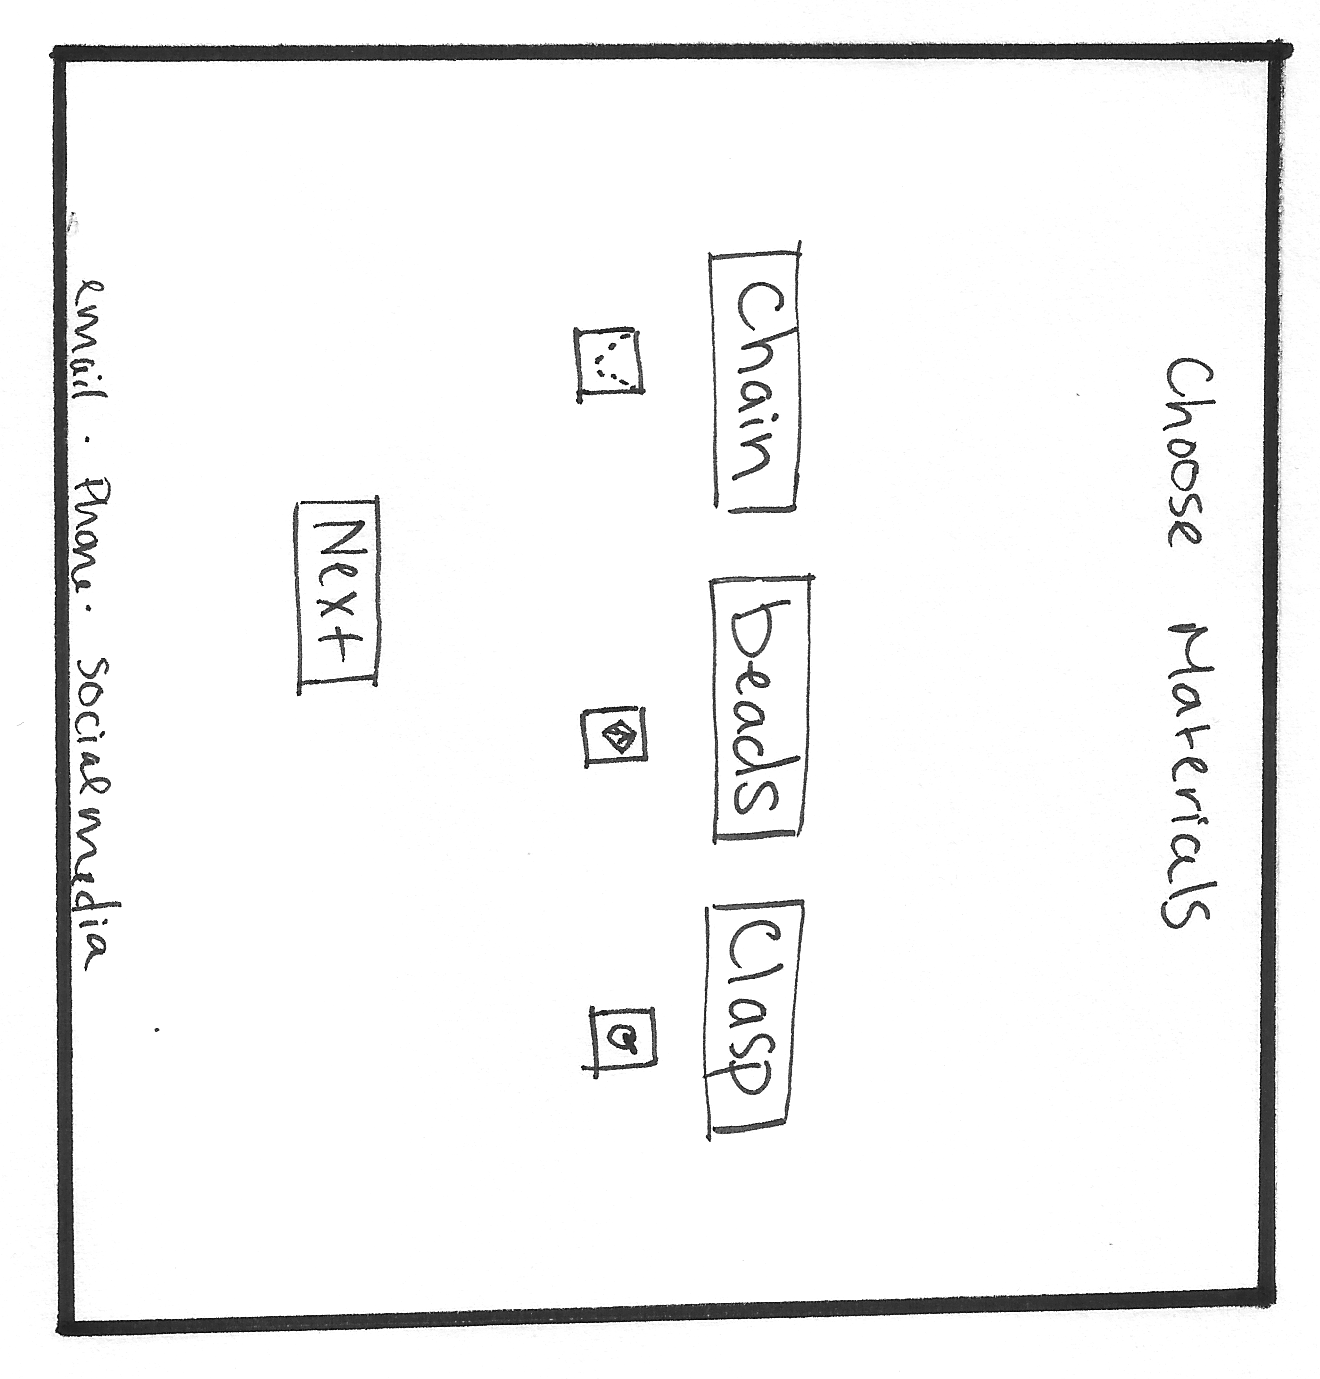 Choose Materials
Chain beads Clasp
Next
email · Phone · Social media